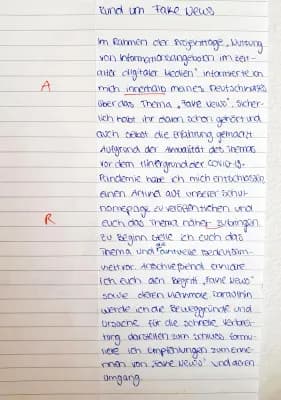 Rund um Fake News
Im Rahmen der Projekttage „Nutzung
von Informationsangeboten im Zeit-
alter digitaler Medien" informierte ich
A mich innerhalb meines Deutschkurses
über das Thema „Fake News". Sicher-
lich habt ihr davon schon gehört und
auch selbst die Erfahrung gemacht.
Aufgrund der Aktualität des Themas
vor dem Hintergrund der COVID-19-
Pandemie habe ich mich entschlossen,
einen Artikel auf unserer Schul-
homepage zu veröffentlichen und
R euch das Thema näher zubringen.
Zu Beginn stelle ich euch das
Thema und die aktuelle Bedeutsam-
keit vor. Anschließend erkläre
ich euch den Begriff „Fake News"
sowie deren Merkmale. Daraufhin
werde ich die Beweggründe und
Ursache für die schnelle Verbrei-
tung darstellen. Zum Schluss formu-
liere ich Empfehlungen zum Erken-
nen von „Fake News" und deren
Umgang.